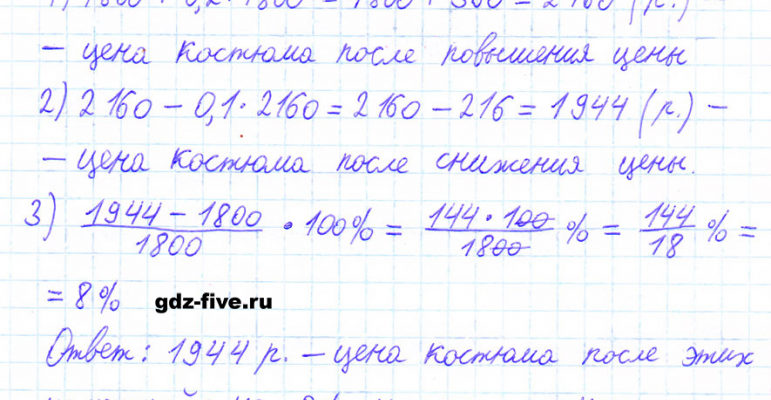 1) 1800 + 0,2 · 1800 = 1800 + 360 = 2160 (р.)
– цена костюма после повышения цены
2) 2160 – 0,1 · 2160 = 2160 – 216 = 1944 (р.) –
– цена костюма после снижения цены.
3) (1944 – 1800)/1800 · 100% = (144 · 100)/1800 % = 144/18 % =
= 8%
gdz-five.ru
Ответ: 1944 р. – цена костюма после этих